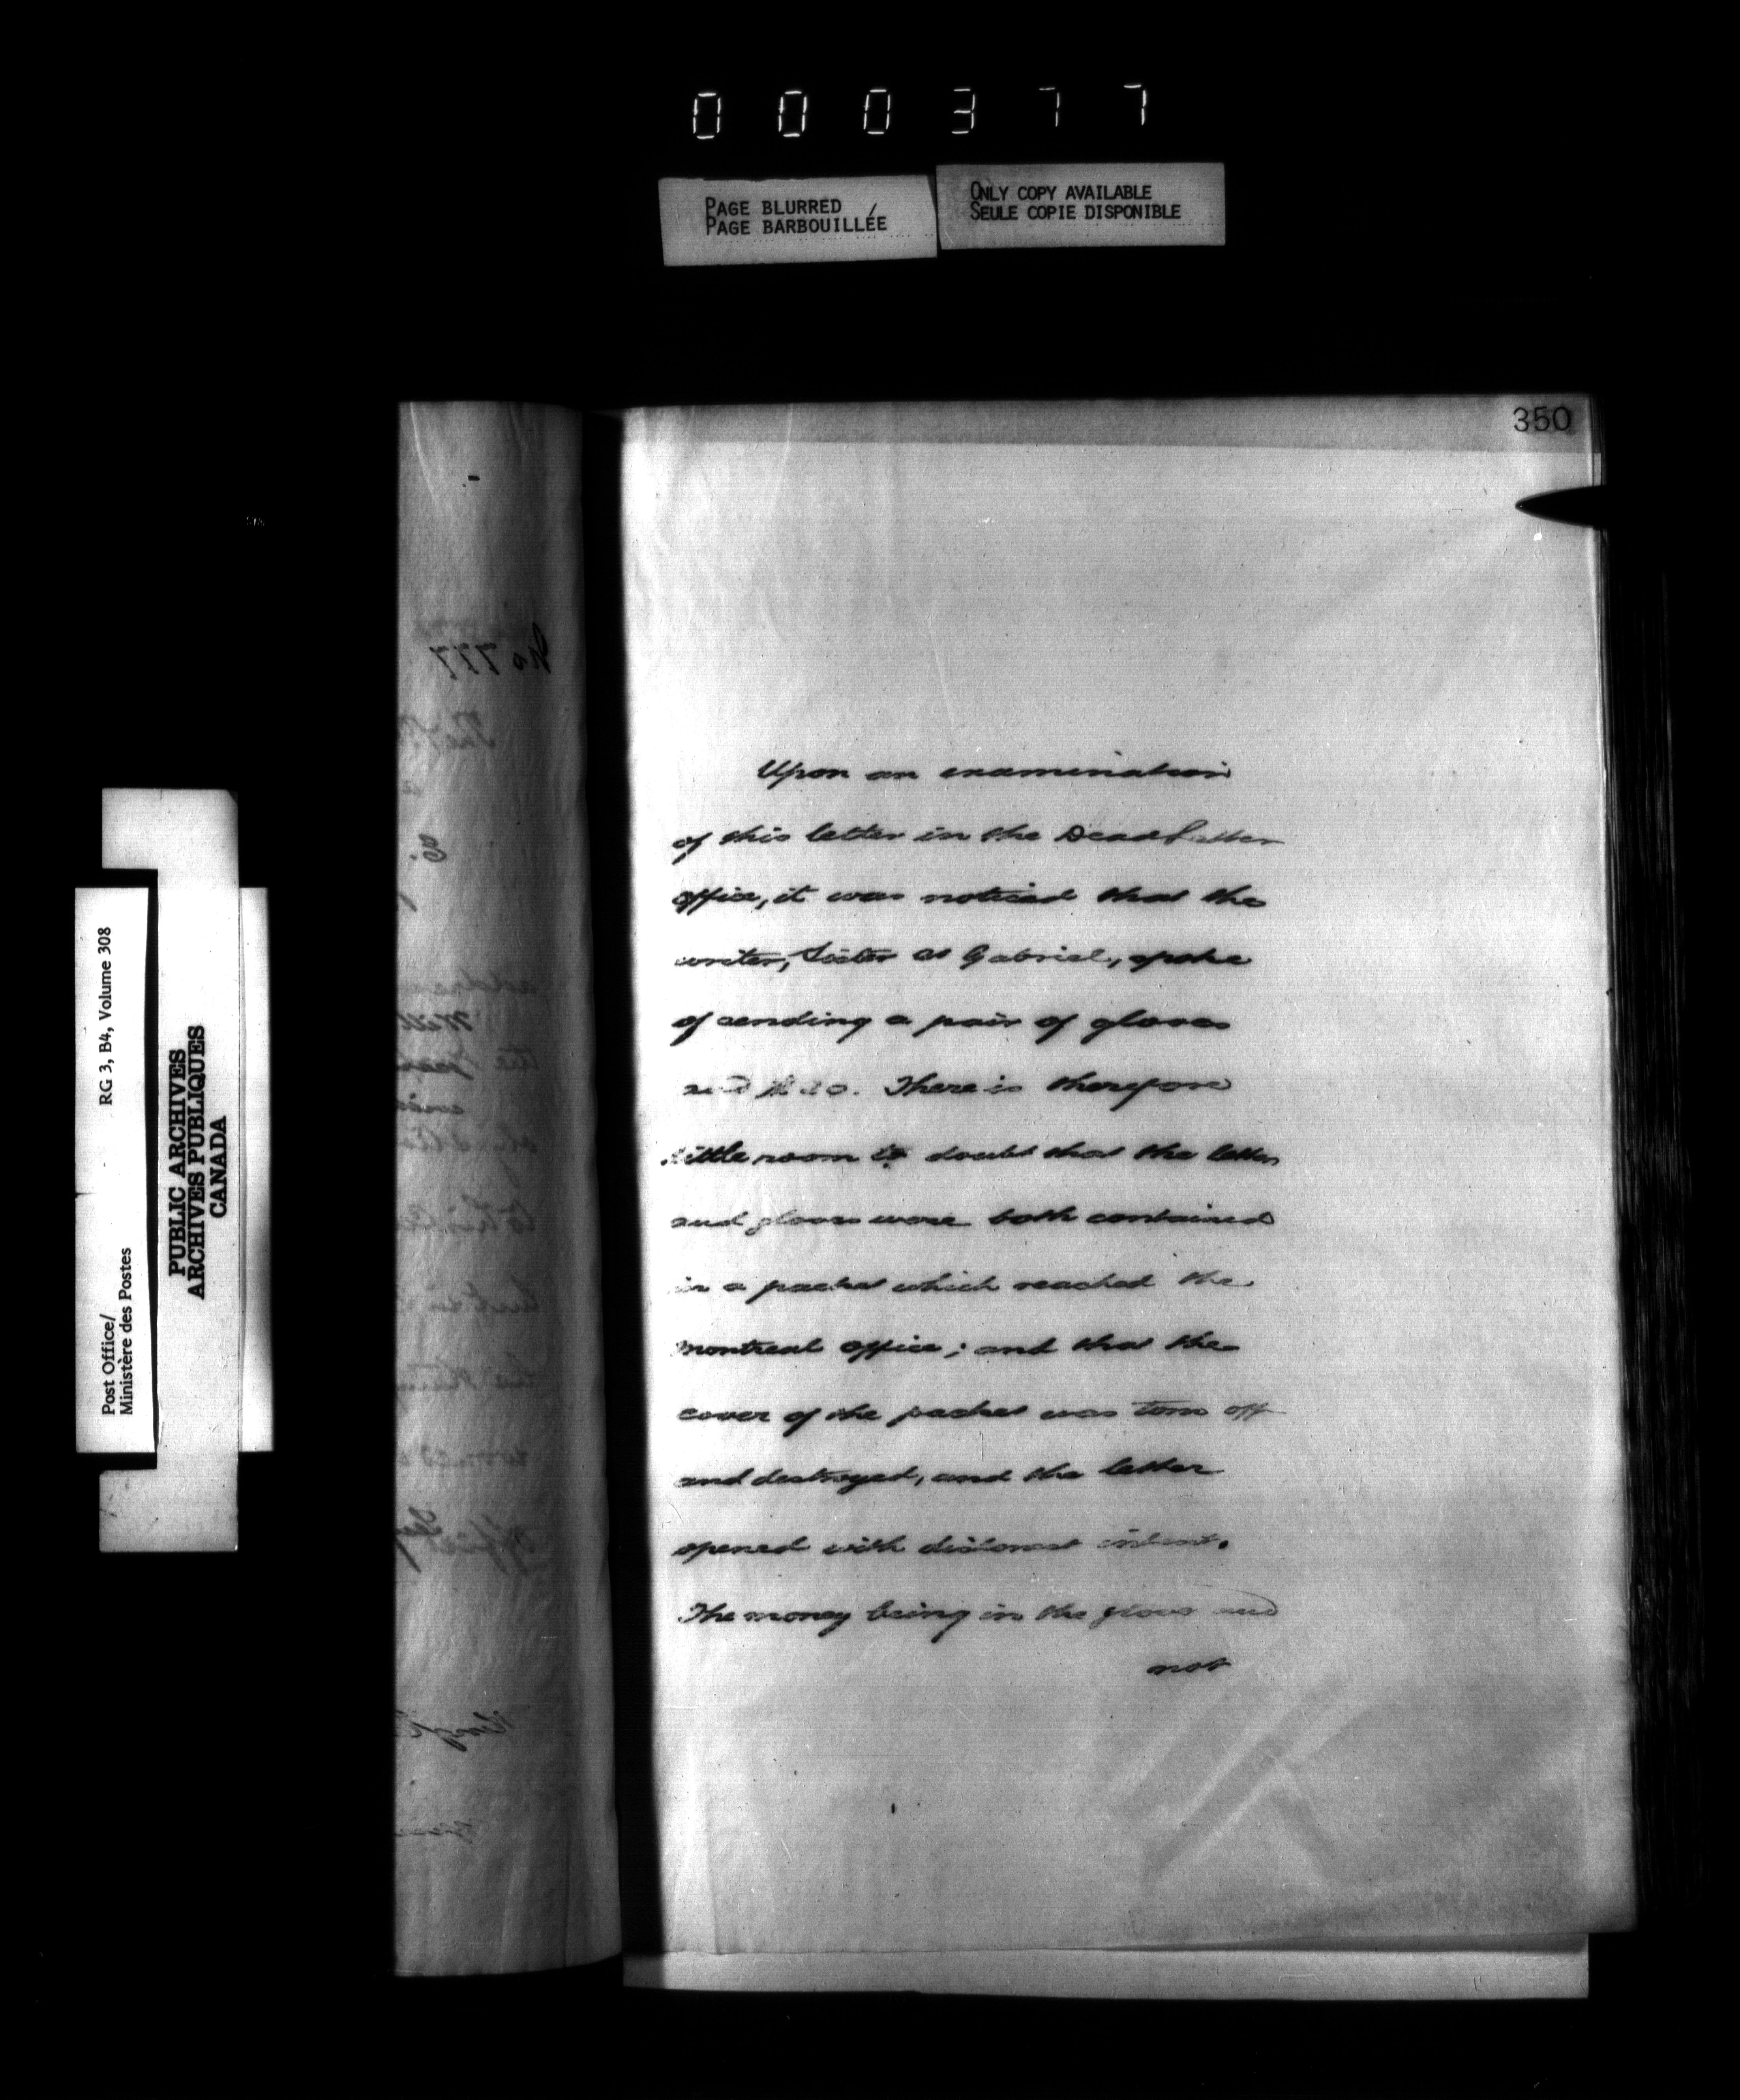 000377
PAGE BLURRED
PAGE BARBOUILLÉE
ONLY COPY AVAILABLE
SEULE COPIE DISPONIBLE
350
Upon an examination
of this letter in the Dead Letter
office, it was noticed that the
writer, Sister St Gabriel, spoke
of sending a pair of gloves
and There is therefore
little room to doubt that the letter
and gloves were both contained
in a packet which reached the
Montreal office; and that the
cover of the packet was torn off
and destroyed, and the letter
opened with dishonest intent.
The money being in the gloves and
not
No 777
Post Office/
Ministère des Postes
RG 3, B4, Volume 308
PUBLIC ARCHIVES
ARCHIVES PUBLIQUES
CANADA